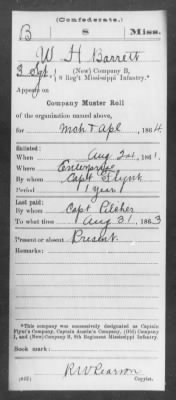 (Confederate.)
B 8 Miss.
W H Barrett
3 Sgt., (New) Company B,
8 Reg't Mississippi Infantry.*
Appears on
Company Muster Roll
of the organization named above,
for Mch & Apl, 1864
Enlisted:
When Aug 21, 1861.
Where Enterprise
By whom Capt Flynt
Period 1 year
Last paid:
By whom Capt Pilcher
To what time Aug 31, 1863
Present or absent Present
Remarks:
*This company was successively designated as Captain
Flynt's Company, Captain Austin's Company, (Old) Company
I, and (New) Company B, 8th Regiment Mississippi Infantry.
Book mark:
R W Pearson
(642) Copyist.